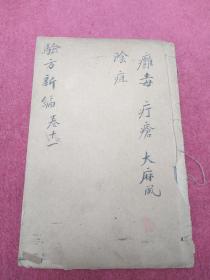 癰毒 疔瘡 大麻风
陰疽
驗方新編 卷十一